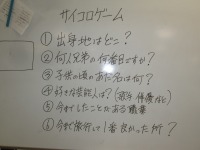 サイコロゲーム
① 出身地はどこ？
② 何人兄弟の何番目ですか？
③ 子供の頃のあだ名は何？
④ 好きな芸能人は？(歌手 俳優など)
⑤ 今までしたことがある職業
⑥ 今まで旅行で1番良かった所？